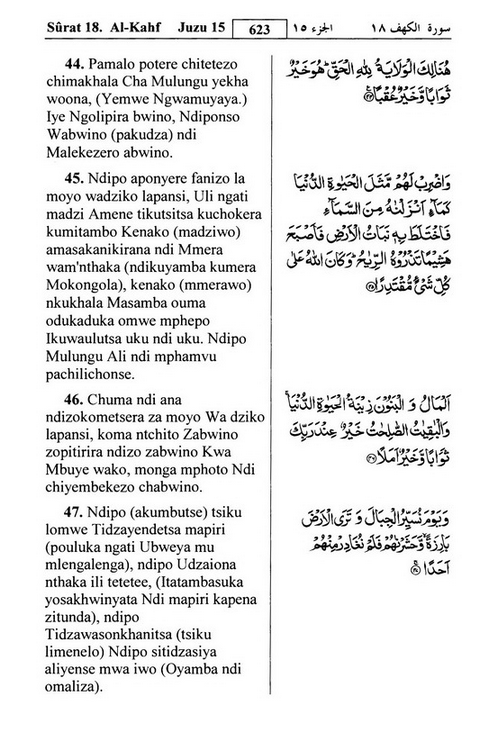 Sûrat 18. Al-Kahf Juzu 15 623 الجزء ١٥ سورة الكهف ١٨
44. Pamalo potere chitetezo
chimakhala Cha Mulungu yekha
woona, (Yemwe Ngwamuyaya.)
Iye Ngolipira bwino, Ndiponso
Wabwino (pakudza) ndi
Malekezero abwino.
هُنَالِكَ الْوَلَايَةُ لِلّٰهِ الْحَقِّ ۚ هُوَ خَيْرٌ
ثَوَابًا وَّخَيْرٌ عُقْبًا ﴿٤٤﴾
45. Ndipo aponyere fanizo la
moyo wadziko lapansi, Uli ngati
madzi Amene tikutsitsa kuchokera
kumitambo Kenako (madziwo)
amasakanikirana ndi Mmera
wam'nthaka (ndikuyamba kumera
Mokongola), kenako (mmerawo)
nkukhala Masamba ouma
odukaduka omwe mphepo
Ikuwaulutsa uku ndi uku. Ndipo
Mulungu Ali ndi mphamvu
pachilichonse.
وَاضْرِبْ لَهُمْ مَّثَلَ الْحَيٰوةِ الدُّنْيَا
كَمَآءٍ اَنْزَلْنٰهُ مِنَ السَّمَآءِ
فَاخْتَلَطَ بِهٖ نَبَاتُ الْاَرْضِ فَاَصْبَحَ
هَشِيْمًا تَذْرُوْهُ الرِّيٰحُ ۗ وَكَانَ اللّٰهُ عَلٰى
كُلِّ شَيْءٍ مُّقْتَدِرًا ﴿٤٥﴾
46. Chuma ndi ana
ndizokometsera za moyo Wa dziko
lapansi, koma ntchito Zabwino
zopitirira ndizo zabwino Kwa
Mbuye wako, monga mphoto Ndi
chiyembekezo chabwino.
اَلْمَالُ وَالْبَنُوْنَ زِيْنَةُ الْحَيٰوةِ الدُّنْيَا ۚ
وَالْبٰقِيٰتُ الصّٰلِحٰتُ خَيْرٌ عِنْدَ رَبِّكَ
ثَوَابًا وَّخَيْرٌ اَمَلًا ﴿٤٦﴾
47. Ndipo (akumbutse) tsiku
lomwe Tidzayendetsa mapiri
(pouluka ngati Ubweya mu
mlengalenga), ndipo Udzaiona
nthaka ili tetetee, (Itatambasuka
yosakhwinyata Ndi mapiri kapena
zitunda), ndipo
Tidzawasonkhanitsa (tsiku
limenelo) Ndipo sitidzasiya
aliyense mwa iwo (Oyamba ndi
omaliza).
وَيَوْمَ نُسَيِّرُ الْجِبَالَ وَتَرَى الْاَرْضَ
بَارِزَةً ۙ وَّحَشَرْنٰهُمْ فَلَمْ نُغَادِرْ مِنْهُمْ
اَحَدًا ﴿٤٧﴾